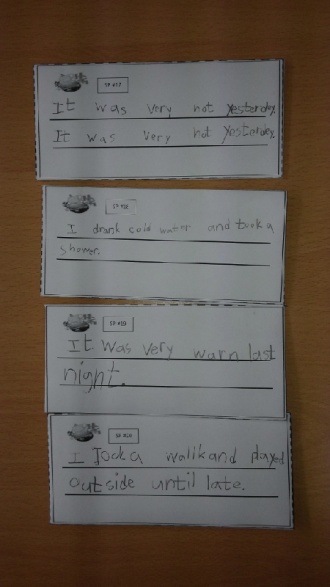 SP #17
It was very hot yesterday.
It was very hot yesterday.
SP #18
I drank cold water and took a
shower.
SP #19
It was very warn last
night.
SP #20
I Took a walk and played
outside until late.